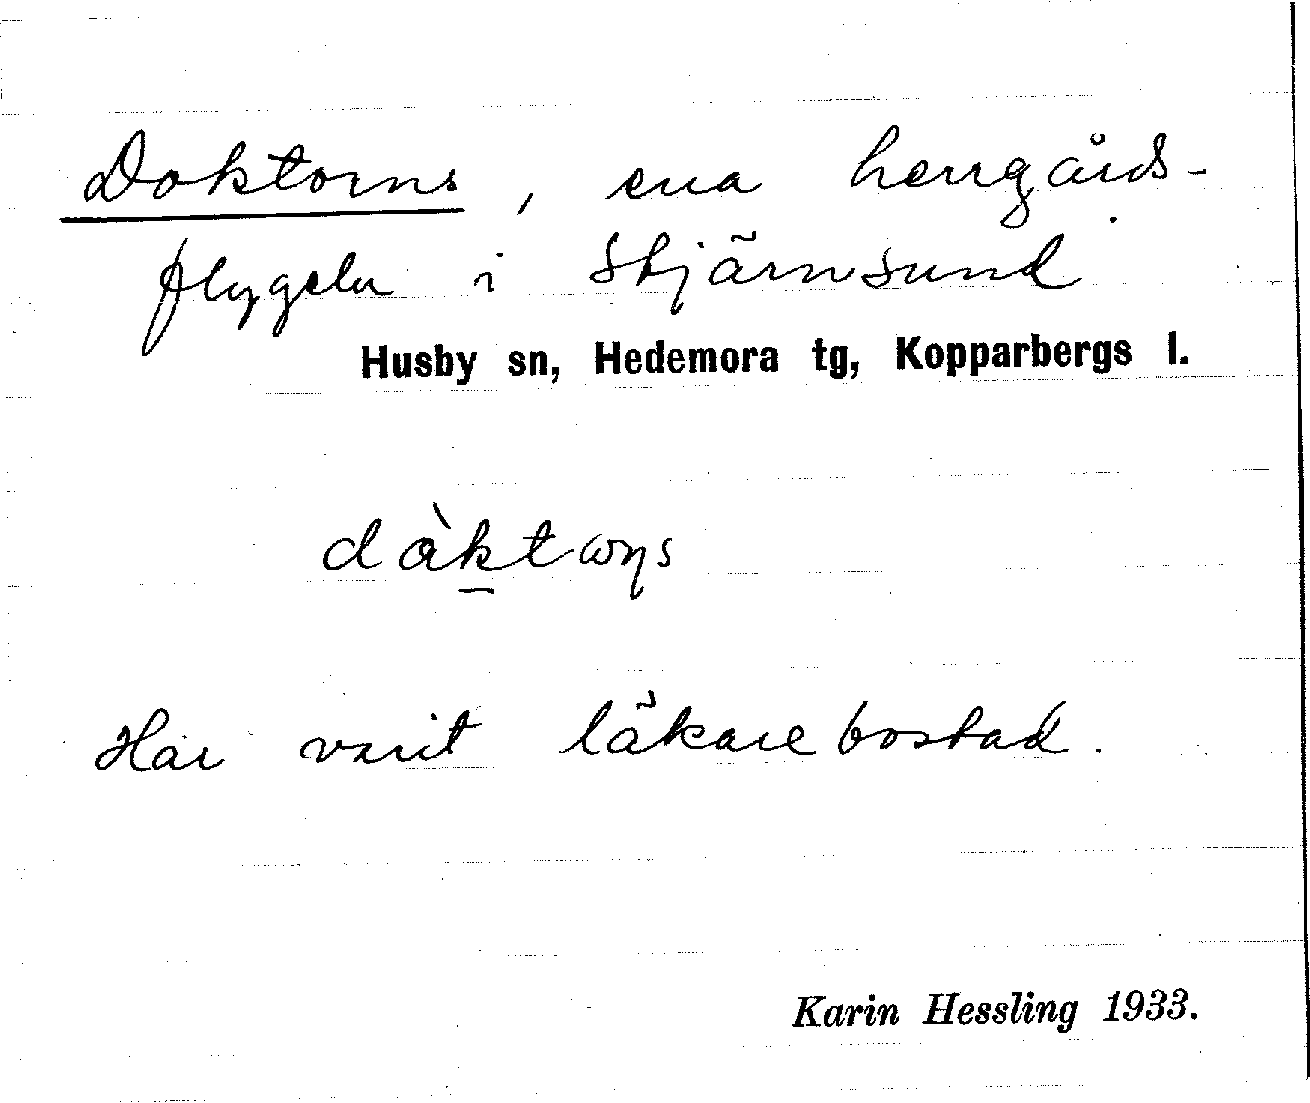 Doktorns, ena herrgårds-
flygeln i Stjärnsund
Husby sn, Hedemora tg, Kopparbergs l.
dàktωɳs
Har varit läkarebostad.
Karin Hessling 1933.